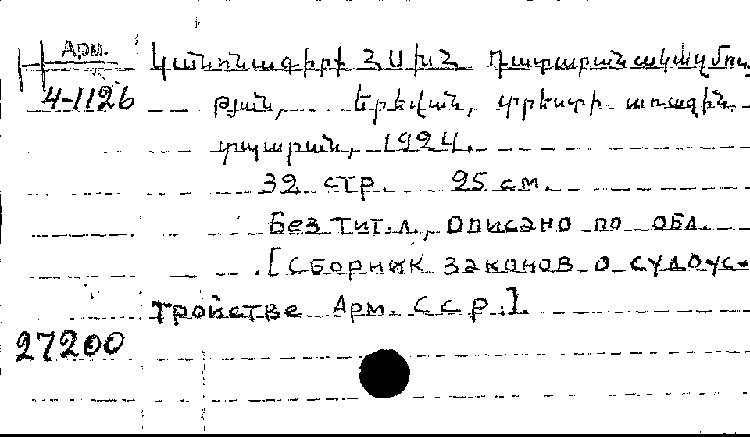 Арм.
4-1126
Կանոնագիրք ՀՍԽՀ Դատարանակազմու
թյան, Երեվան, տրեստի առաջին
տպարան, 1924.
32 стр. 25 см.
Без тит. л., описано по обл.
[Сборник законов о судоус-
тройстве Арм. ССР.].
27200